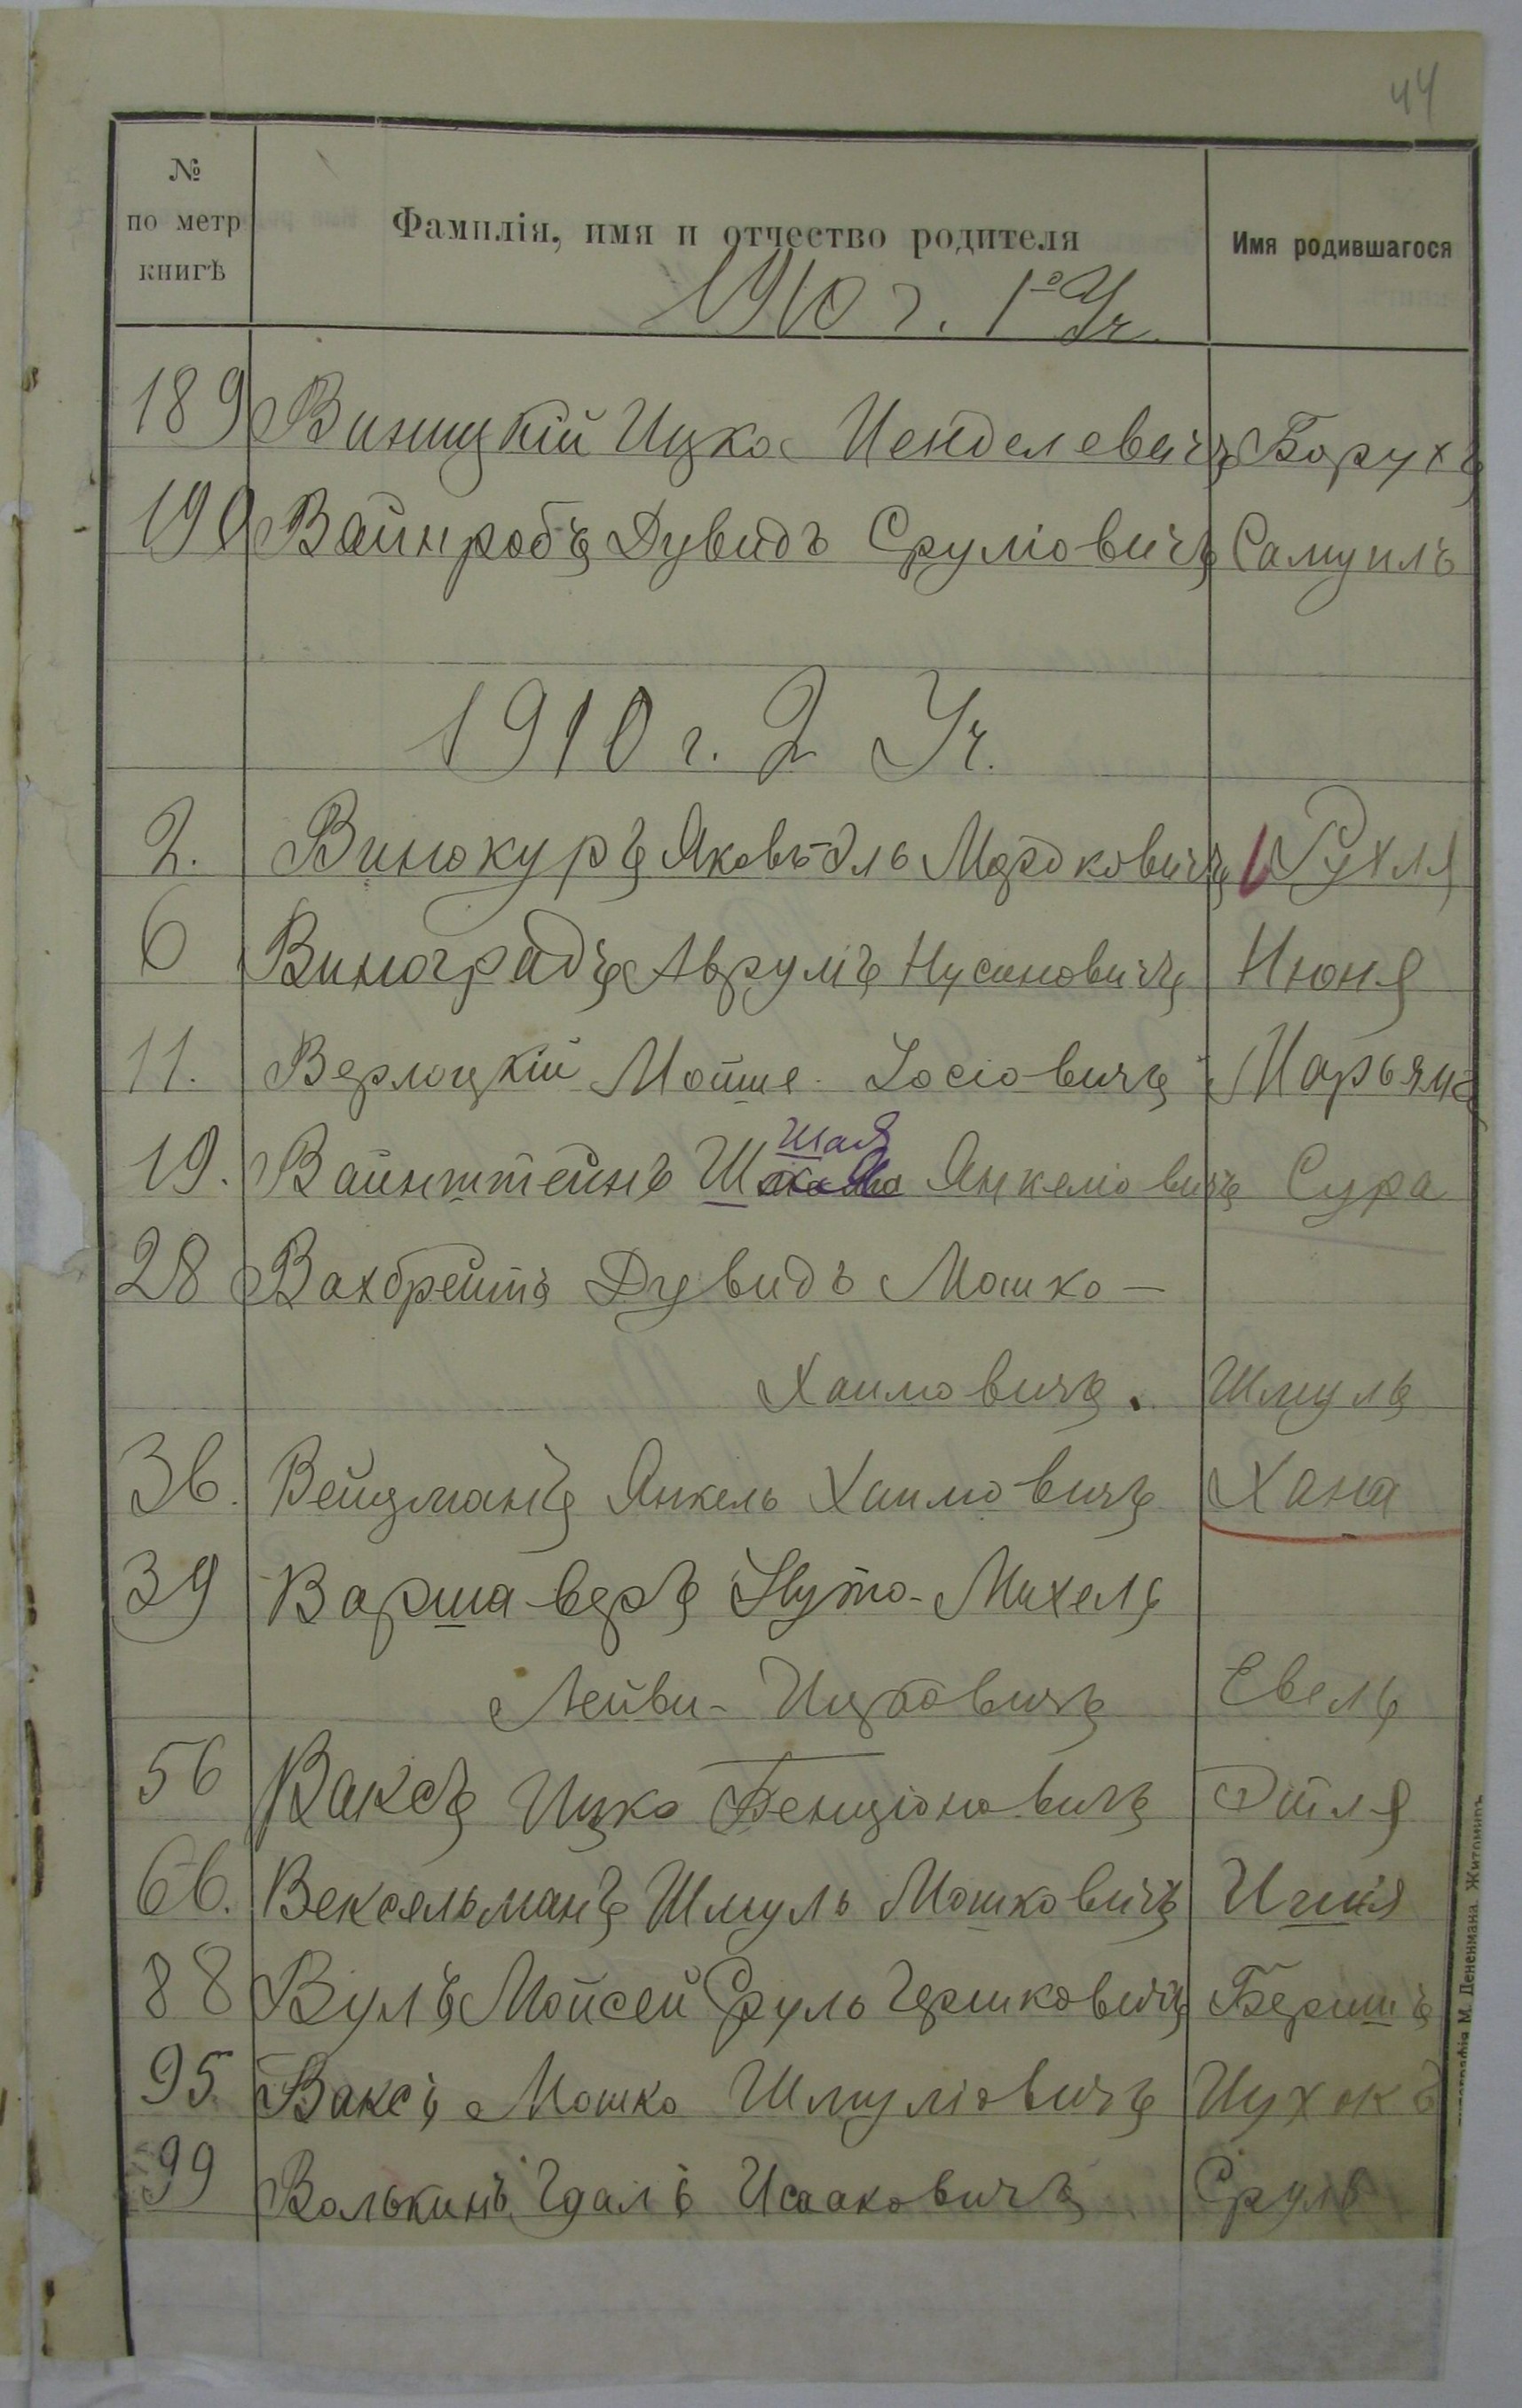 44
№
по метр
книгѣ
Фамилія, имя и отчество родителя
Имя родившагося
1910 г. 1º Уч.
189 Виницкій Ицко Менделевичъ Борухъ
190 Вайнробъ Дувидъ Сруліовичъ Самуилъ
1910 г. 2 Уч.
2. Винокуръ Яковъ-Эль Мордковичъ Рухля
6 Виноградъ Аврумъ Нусиновичъ Нюня
11. Верлоцкій Мойше Іосіовичъ Марьямъ
Шая
19. Вайнштейнъ Янкеліовичъ Сура
28 Вахбрейтъ Дувидъ Мошко-
Хаимовичъ. Шмуль
36. Вейцманъ Янкель Хаимовичъ Хана
39 Варшаверъ Нуто-Михель
Лейви-Ицковичъ Евель
56 Ваксъ Ицко Бенціоновичъ Этля
66. Вексельманъ Шмуль Мошковичъ
88 Вулъ Мойсей Сруль Гершковичъ Беришъ
95 Ваксъ Мошко Шмуліовичъ Цухокъ
99 Волькинъ Гдалъ Исааковичъ Сруль
типографія М. Дененмана. Житомиръ